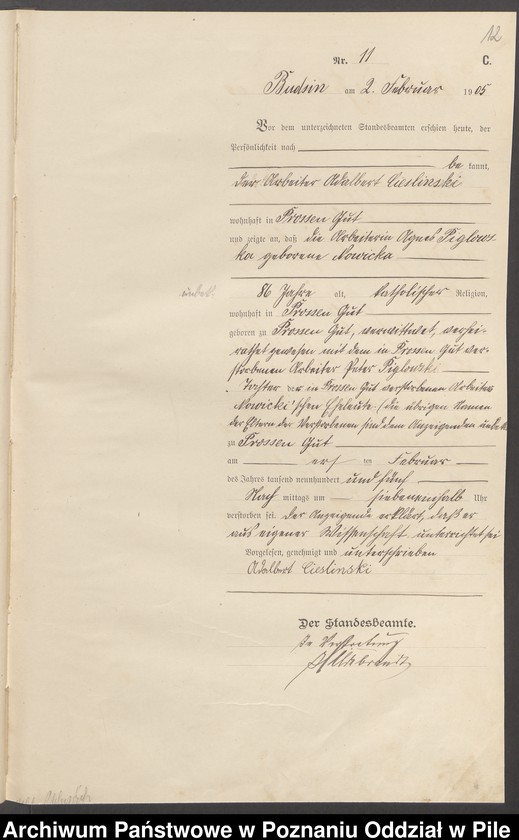 12
Nr. 11 C.
Budsin am 2. Februar 1905
Vor dem unterzeichneten Standesbeamten erschien heute, der
Persönlichkeit nach
be kannt,
der Arbeiter Adalbert Cieslinski
wohnhaft in Prossen Gut
und zeigte an, daß die Arbeiterin Agnes Piglows-
ka geborene Nowicka
86 Jahre alt, katholischer Religion,
wohnhaft in Prossen Gut
geboren zu Prossen Gut, verwittwet, verhei-
rathet gewesen mit dem in Prossen Gut ver-
storbenen Arbeiter Peter Piglowski
Tochter der in Prossen Gut verstorbenen Arbeiter
Nowicki'schen Eheleute (die übrigen Namen
der Eltern der Verstorbenen sind dem Anzeigenden unbek.
zu Prossen Gut
am ersten Februar
des Jahres tausend neunhundert und fünf
Nach mittags um siebeneinhalb Uhr
verstorben sei. Der Anzeigende erklärt, daß er
aus eigener Wissenschaft unterrichtet sei
Vorgelesen, genehmigt und unterschrieben
Adalbert Cieslinski
Der Standesbeamte.
In Vertretung
Hildebrandt
Archiwum Państwowe w Poznaniu Oddział w Pile